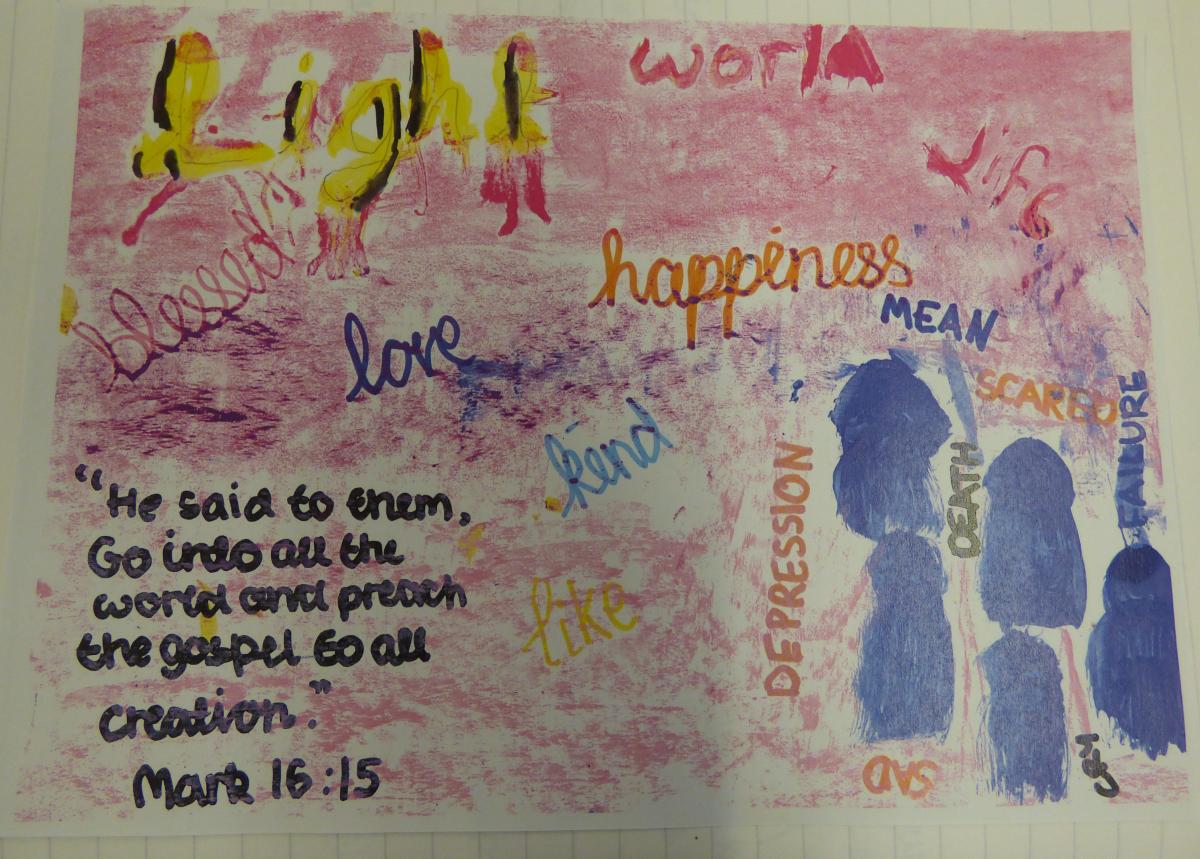 Light
world
Life
blessed
happiness
MEAN
love
SCARED
FAILURE
kind
DEATH
DEPRESSION
like
"He said to them,
Go into all the
world and preach
the gospel to all
creation."
Mark 16:15
SAD